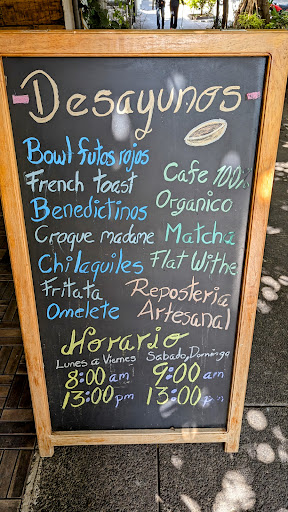 Desayunos
Bowl futos rojos
French toast
Benedictinos
Croque madame
Chilaquiles
Fritata
Omelete
Cafe 100%
Organico
Matcha
Flat Withe
Reposteria
Artesanal
Horario
Lunes a Viernes
8:00 am
13:00 pm
Sabado, Domingo
9:00 am
13:00 pm